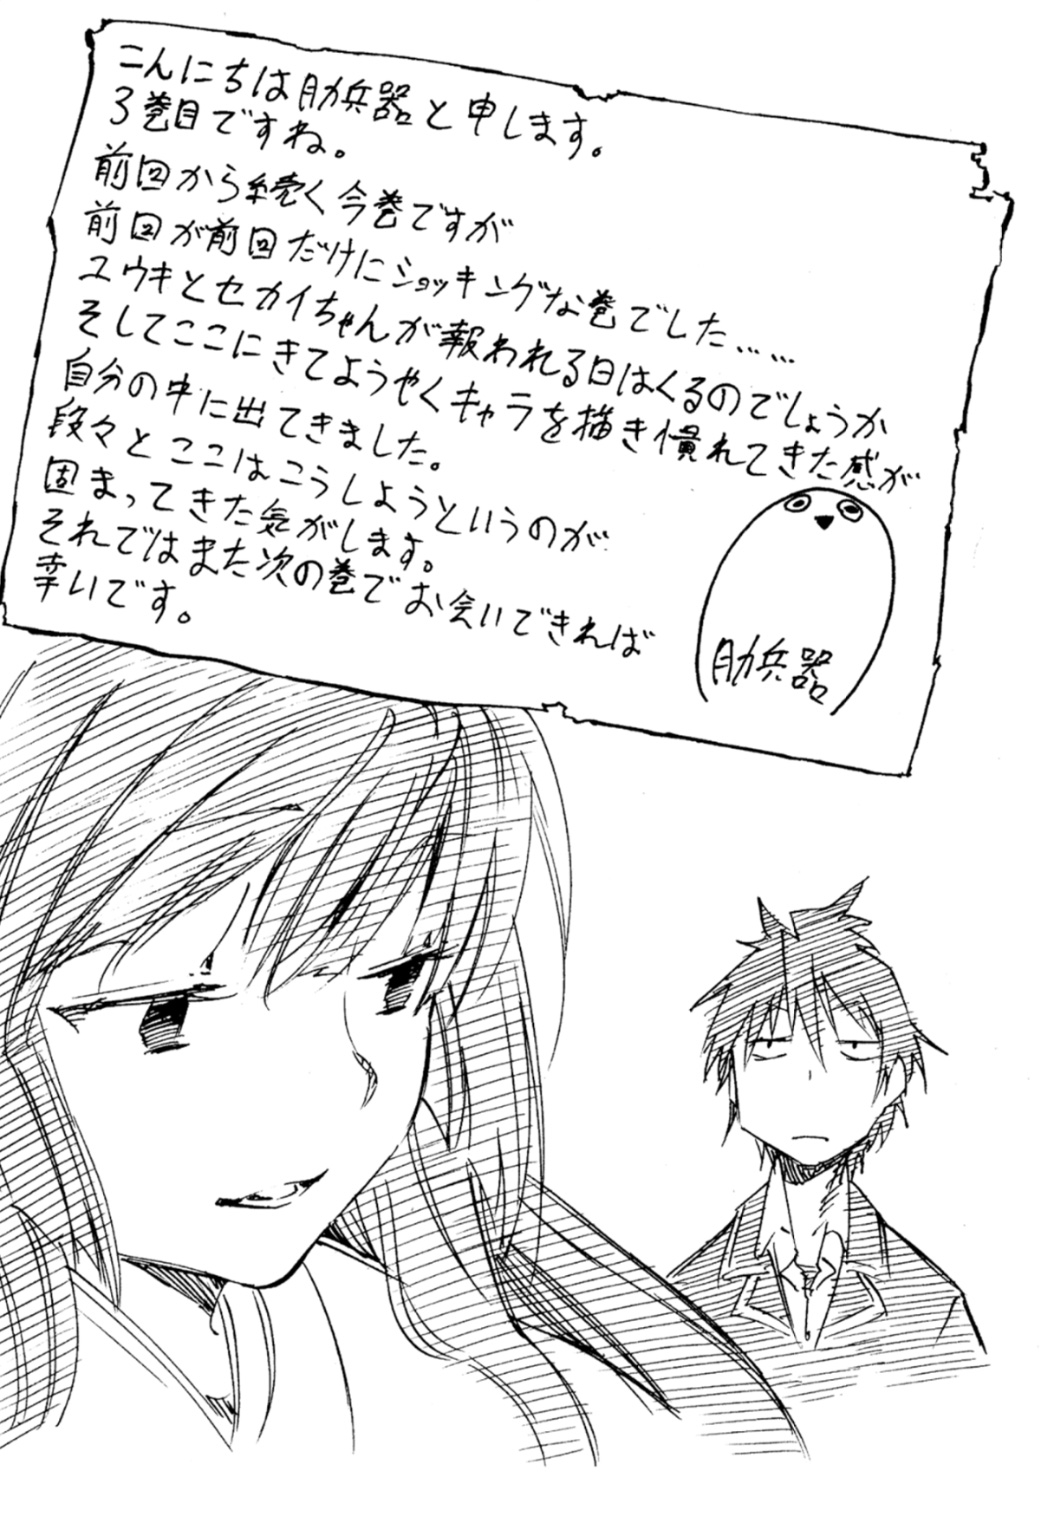 こんにちは肋兵器と申します。
3巻目ですね。
前回から続く今巻ですが
前回が前回だけにショッキングな巻でした……
ユウキとセカイちゃんが報われる日はくるのでしょうか
そしてここにきてようやくキャラを描き慣れてきた感が
自分の中に出てきました。
段々とここはこうしようというのが
固まってきた気がします。
それではまた次の巻でお会いできれば
幸いです。
肋兵器